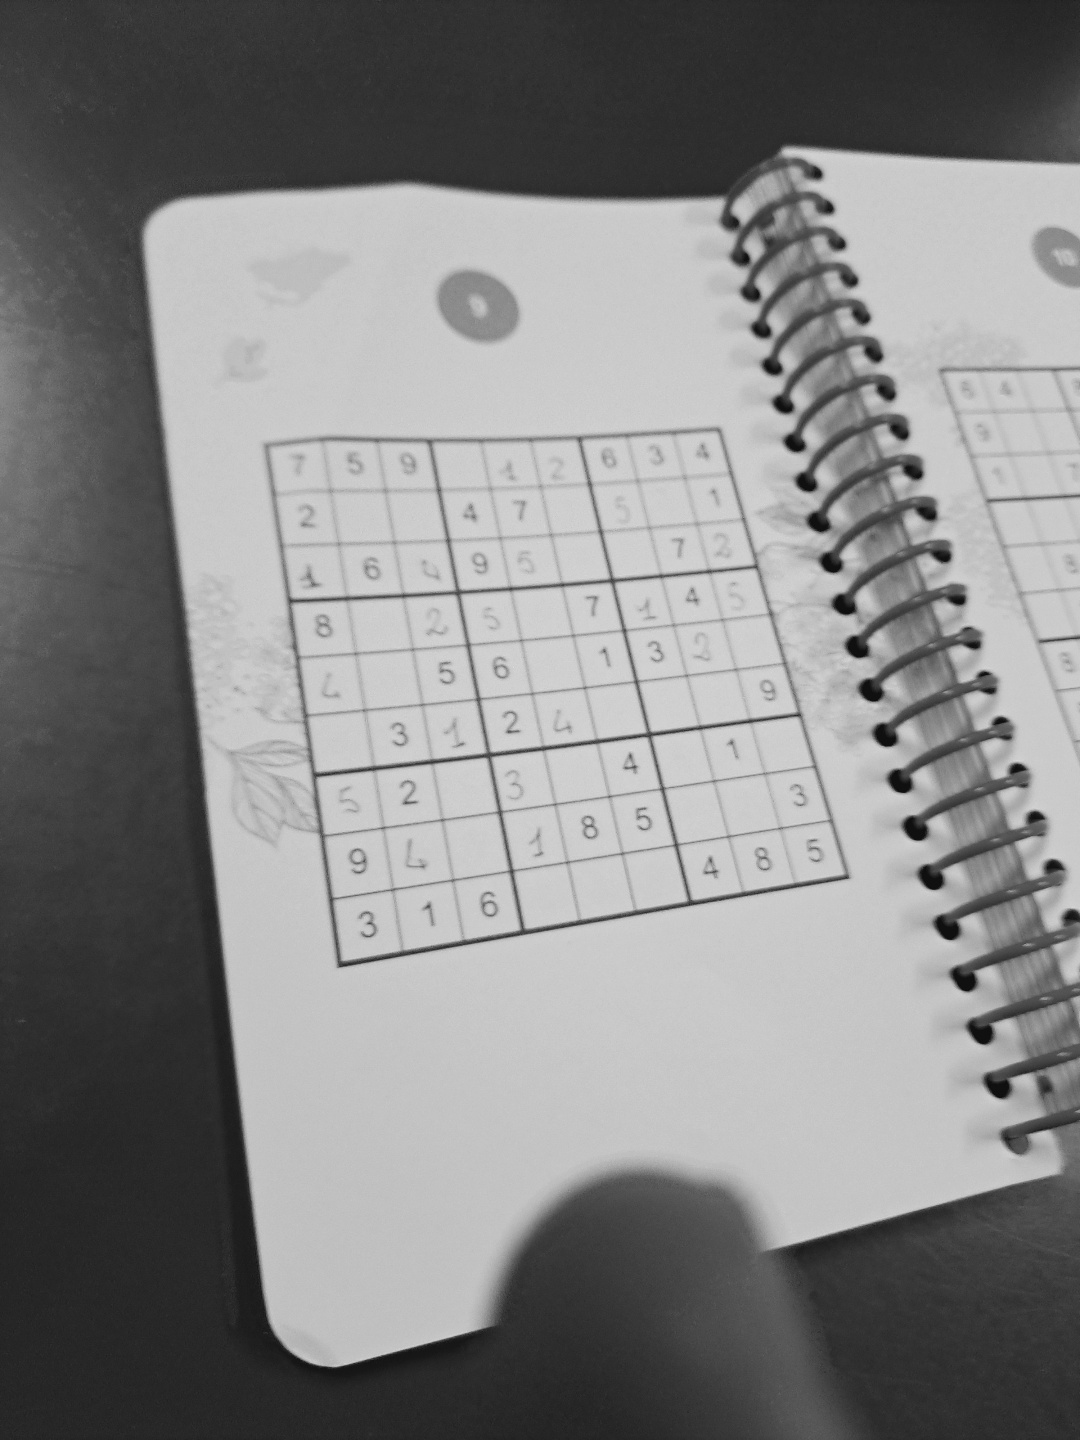 9
10
7 5 9 1 2 6 3 4
2 4 7 5 1
1 6 4 9 5 7 2
8 2 5 7 1 4 5
4 5 6 1 3 2
3 1 2 4 9
5 2 3 4 1
9 4 1 8 5 3
3 1 6 4 8 5
6 4
9
1 7
8
8